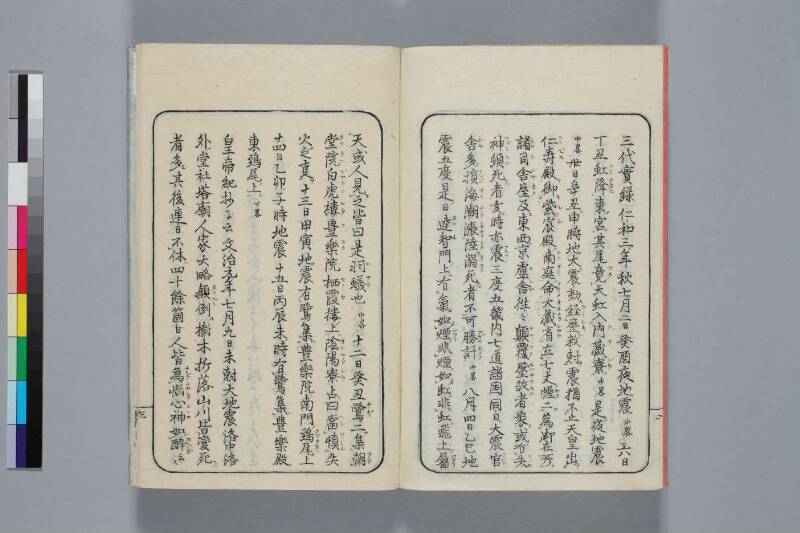 三代實録 仁和三年秋七月二日癸酉夜地震 中畧 六日
丁丑虹降東宮其尾竟天虹入内藏寮 中畧 是夜地震
中畧 卅日辛丑申時地大震動經歴數尅震猶不止天皇出
仁壽殿御紫宸殿南庭命大藏省立七丈幄二爲御在所
諸司舍屋及東西京廬舍往々顛覆壓殺者衆或有失
神頓死者亥時亦震三度五畿内七道諸国同日大震官
舍多損海潮漲陸溺死者不可勝計 中畧 八月四日乙巳地
震五度是日達智門上有氣如煙非煙如虹非虹飛上屬
天或人見之皆曰是羽蟻也 中畧 十二日癸丑鷺二集朝
堂院白虎樓豊樂院栖霞樓上陰陽寮占曰當慎失
火之變十三日甲寅地震有鷺集豊樂院南門鵄尾上
十四日乙卯子時地震十五日丙辰未時有鷺集豊樂殿
東鵄尾上 下畧
皇帝紀抄云文治元年七月九日未尅大地震洛中洛
外堂社塔廟人家大略顛倒樹木折落山川皆變死
者多其後連日不休四十餘箇日人皆爲惱心神如醉云